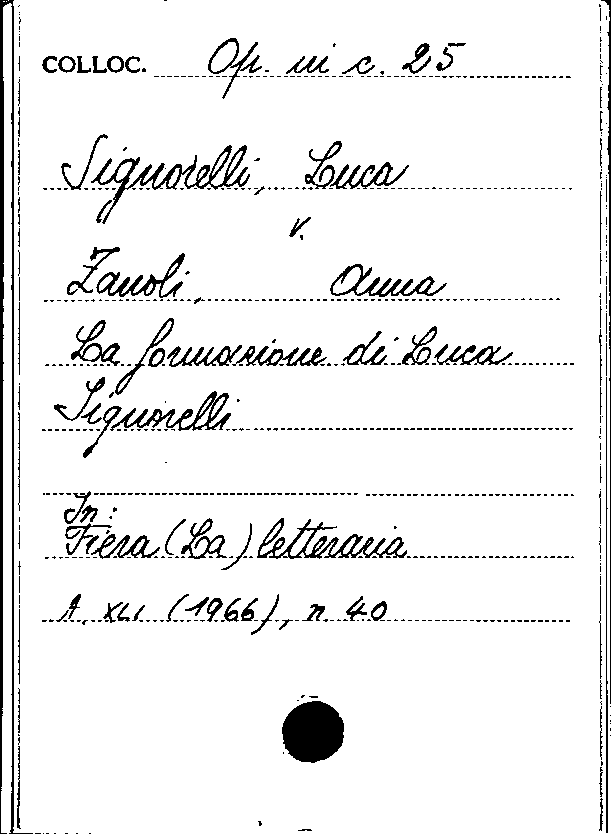 COLLOC. Op. in c. 25
Signorelli, Luca
v.
Zanoli, Anna
La formazione di Luca
Signorelli
In:
Fiera (La) letteraria
A. XLI (1966), n. 40